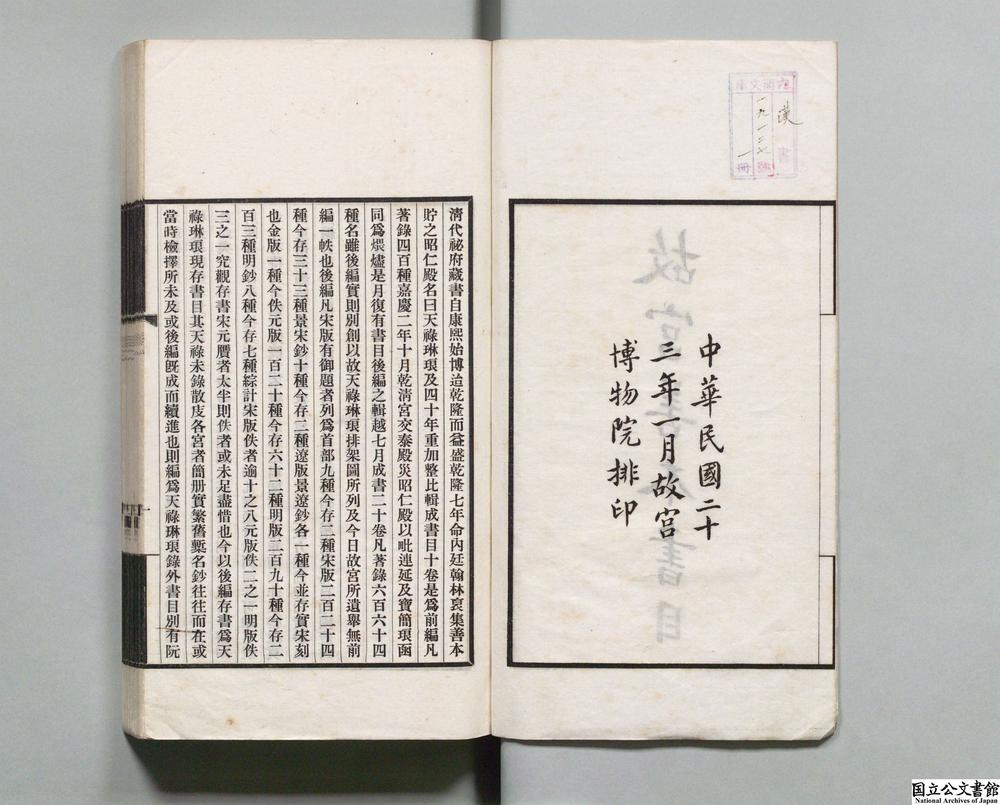 漢
書
一九一二七
號
一
冊
中華民國二十
三年一月故宮
博物院排印
故宮善本書目
清代祕府藏書自康熙始博迨乾隆而益盛乾隆七年命內廷翰林裒集善本
貯之昭仁殿名曰天祿琳瑯及四十年重加整比輯成書目十卷是爲前編凡
著錄四百種嘉慶二年十月乾淸宮交泰殿災昭仁殿以毗連延及寶簡瑯函
同爲煨燼是月復有書目後編之輯越七月成書二十卷凡著錄六百六十四
種名雖後編實則別創以故天祿琳瑯排架圖所列及今日故宮所遺舉無前
編一帙也後編凡宋版有御題者列爲首部九種今存二種宋版二百二十四
種今存三十三種景宋鈔十種今存二種遼版景遼鈔各一種今並存實宋刻
也金版一種今佚元版一百二十種今存六十二種明版二百九十種今存二
百三種明鈔八種今存七種綜計宋版佚者逾十之八元版佚二之一明版佚
三之一究觀存書宋元贋者太半則佚者或未足盡惜也今以後編存書爲天
祿琳瑯現存書目其天祿未錄散庋各宮者簡册實繁舊槧名鈔往往而在或
當時檢擇所未及或後編旣成而續進也則編爲天祿琳瑯錄外書目別有阮
国立公文書館
National Archives of Japan